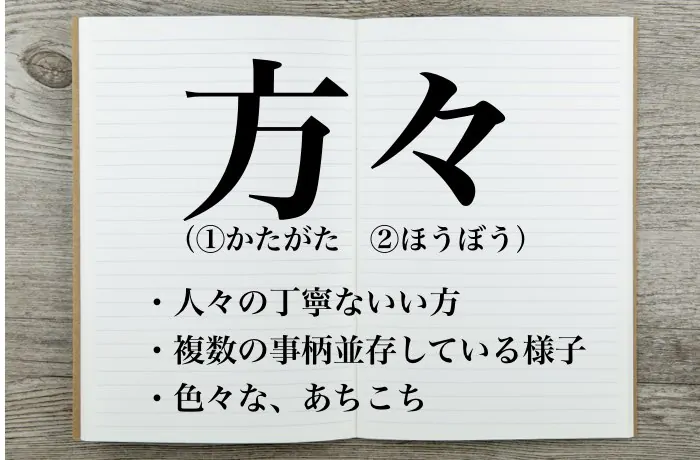 方々
（①かたがた　②ほうぼう）
・人々の丁寧ないい方
・複数の事柄並存している様子
・色々な、あちこち